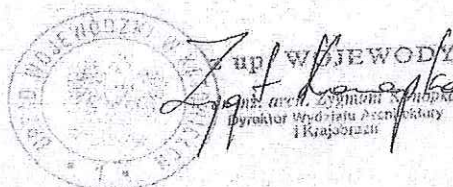 URZĄD WOJEWÓDZKI W KATOWICACH
* 7 *
z up. WOJEWODY
mgr inż. arch. Zygmunt Konopka
Dyrektor Wydziału Architektury
i Krajobrazu